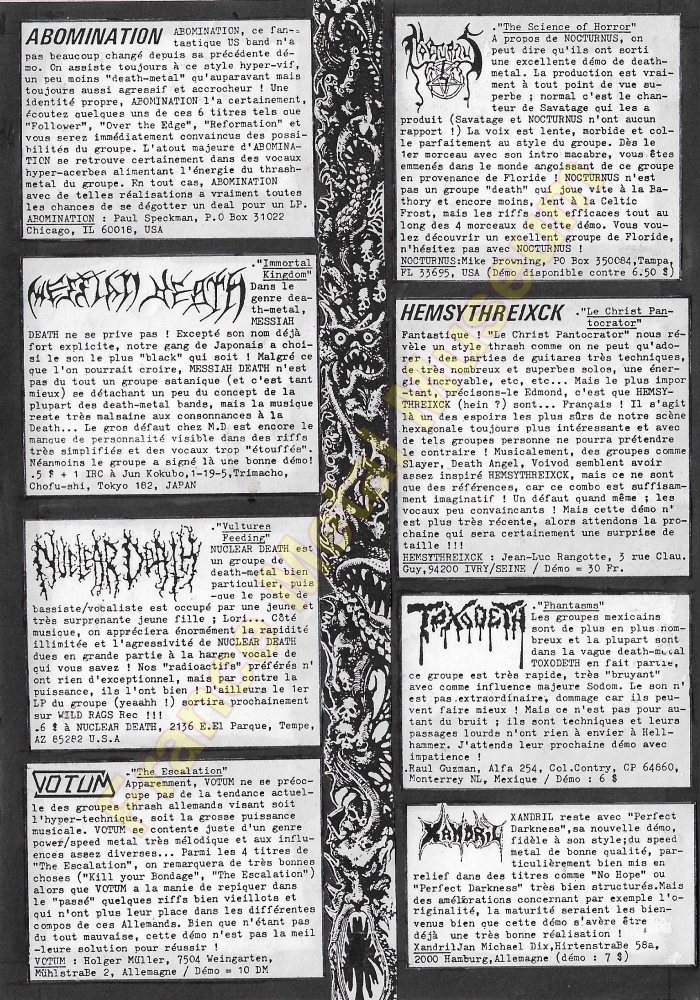 ABOMINATION ABOMINATION, ce fan-
tastique US band n'a
pas beaucoup changé depuis sa précédente dé-
mo. On assiste toujours à ce style hyper-vif,
un peu moins "death-metal" qu'auparavant mais
toujours aussi agressif et accrocheur ! Une
identité propre, ABOMINATION l'a certainement,
écoutez quelques uns de ces 6 titres tels que
"Follower", "Over the Edge", "Reformation" et
vous serez immédiatement convaincus des possi-
bilités du groupe. L'atout majeure d'ABOMINA-
TION se retrouve certainement dans des vocaux
hyper-acerbes alimentant l'énergie du thrash
metal du groupe. En tout cas, ABOMINATION
avec de telles réalisations a vraiment toutes
les chances de se dégotter un deal pour un LP.
ABOMINATION : Paul Speckman, P.O Box 31022
Chicago, IL 60018, USA
MESSIAH DEATH
."Immortal
Kingdom"
Dans le
genre dea-
th-metal,
MESSIAH
DEATH ne se prive pas ! Excepté son nom déjà
fort explicite, notre gang de Japonais a choi-
si le son le plus "black" qui soit ! Malgré ce
que l'on pourrait croire, MESSIAH DEATH n'est
pas du tout un groupe satanique (et c'est tant
mieux) se détachant un peu du concept de la
plupart des death-metal bands, mais la musique
reste très malsaine aux consonnances à la
Death... Le gros défaut chez M.D est encore le
manque de personnalité visible dans des riffs
très simplifiés et des vocaux trop "étouffés".
Néanmoins le groupe a signé là une bonne démo!
.5 $ + 1 IRC à Jun Kokubo,1-19-5,Trimacho,
Chofu-shi, Tokyo 182, JAPAN
NUCLEAR DEATH
."Vultures
Feeding"
NUCLEAR DEATH est
un groupe de
death-metal bien
particulier, puis
-que le poste de
bassiste/vocaliste est occupé par une jeune et
très surprenante jeune fille ; Lori... Côté
musique, on appréciera énormément la rapidité
illimitée et l'agressivité de NUCLEAR DEATH
dues en grande partie à la hargne vocale de
qui vous savez ! Nos "radioactifs" préférés n'
ont rien d'exceptionnel, mais par contre la
puissance, ils l'ont bien ! D'ailleurs le 1er
LP du groupe (yeaahh !) sortira prochainement
sur WILD RAGS Rec !!!
.6 $ à NUCLEAR DEATH, 2136 E.El Parque, Tempe,
AZ 85282 U.S.A
VOTUM
."The Escalation"
Apparemment, VOTUM ne se préoc-
cupe pas de la tendance actuel-
le des groupes thrash allemands visant soit
l'hyper-technique, soit la grosse puissance
musicale. VOTUM se contente juste d'un genre
power/speed metal très mélodique et aux influ-
ences assez diverses... Parmi les 4 titres de
"The Escalation", on remarquera de très bonnes
choses ("Kill your Bondage", "The Escalation")
alors que VOTUM a la manie de repiquer dans
le "passé" quelques riffs bien vieillots et
qui n'ont plus leur place dans les différentes
compos de ces Allemands. Bien que n'étant pas
du tout mauvaise, cette démo n'est pas la meil
-leure solution pour réussir !
VOTUM : Holger Müller, 7504 Weingarten,
Mühlstraße 2, Allemagne / Démo = 10 DM
NOCTURNUS
."The Science of Horror"
A propos de NOCTURNUS, on
peut dire qu'ils ont sorti
une excellente démo de death-
metal. La production est vrai-
ment à tout point de vue su-
perbe ; normal c'est le chan-
teur de Savatage qui les a
produit (Savatage et NOCTURNUS n'ont aucun
rapport !) La voix est lente, morbide et col-
le parfaitement au style du groupe. Dès le
1er morceau avec son intro macabre, vous êtes
emmenés dans le monde angoissant de ce groupe
en provenance de Floride ! NOCTURNUS n'est
pas un groupe "death" qui joue vite à la Ba-
thory et encore moins, lent à la Celtic
Frost, mais les riffs sont efficaces tout au
long des 4 morceaux de cette démo. Vous vou-
lez découvrir un excellent groupe de Floride,
n'hésitez pas avec NOCTURNUS !
NOCTURNUS:Mike Browning, PO Box 350084,Tampa,
FL 33695, USA (Démo disponible contre 6.50 $)
HEMSYTHREIXCK ."Le Christ Pan-
tocrator"
Fantastique ! "Le Christ Pantocrator" nous ré-
vèle un style thrash comme on ne peut qu'ado-
rer ; des parties de guitares très techniques,
de très nombreux et superbes solos, une éner-
gie incroyable, etc, etc... Mais le plus impor
-tant, précisons-le Edmond, c'est que HEMSY-
THREIXCK (hein ?) sont... Français ! Il s'agit
là un des espoirs les plus sûrs de notre scène
hexagonale toujours plus intéressante et avec
de tels groupes personne ne pourra prétendre
le contraire ! Musicalement, des groupes comme
Slayer, Death Angel, Voivod semblent avoir
assez inspiré HEMSYTHREIXCK, mais ce ne sont
que des références, car ce combo est suffisam-
ment imaginatif ! Un défaut quand même ; les
vocaux peu convaincants ! Mais cette démo n'
est plus très récente, alors attendons la pro-
chaine qui sera certainement une surprise de
taille !!!
HEMSYTHREIXCK : Jean-Luc Rangotte, 3 rue Clau.
Guy,94200 IVRY/SEINE / Démo = 30 Fr.
TOXODETH
."Phantasms"
Les groupes mexicains
sont de plus en plus nom-
breux et la plupart sont
dans la vague death-metal
TOXODETH en fait partie,
ce groupe est très rapide, très "bruyant"
avec comme influence majeure Sodom. Le son n'
est pas extraordinaire, dommage car ils peu-
vent faire mieux ! Mais ce n'est pas pour au-
tant du bruit ; ils sont techniques et leurs
passages lourds n'ont rien à envier à Hell-
hammer. J'attends leur prochaine démo avec
impatience !
.Raul Guzman, Alfa 254, Col.Contry, CP 64860,
Monterrey NL, Mexique / Démo : 6 $
XANDRIL
XANDRIL reste avec "Perfect
Darkness",sa nouvelle démo,
fidèle à son style;du speed
metal de bonne qualité, par-
ticulièrement bien mis en
relief dans des titres comme "No Hope" ou
"Perfect Darkness" très bien structurés.Mais
des améliorations concernant par exemple l'o-
riginalité, la maturité seraient les bien-
venus bien que cette démo s'avère être
déjà  une très bonne réalisation !
XandrilJan Michael Dix,Hirtenstraße 58a,
2000 Hamburg,Allemagne (démo : 7 $)